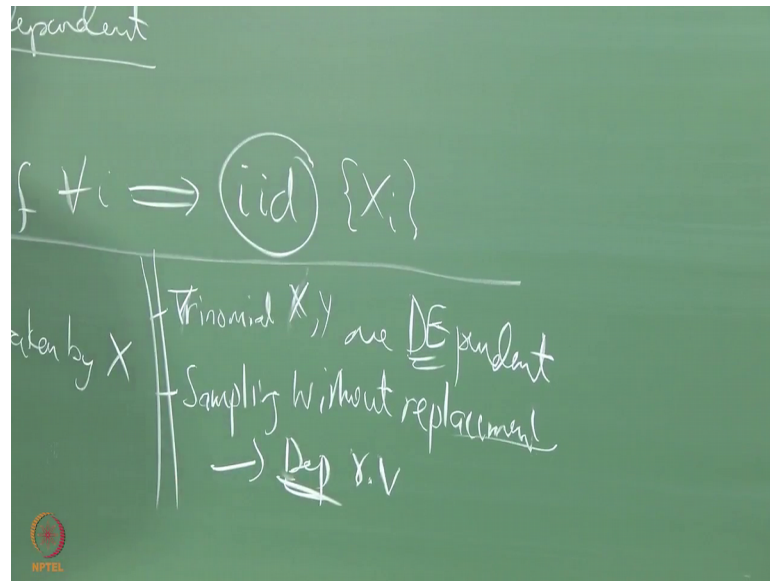 ependent
f ∀i ⟹ iid {Xi}
aken by X
- Trinomial X,Y are DEpendent
- Sampling Without replacement
→ Dep r.v
NPTEL